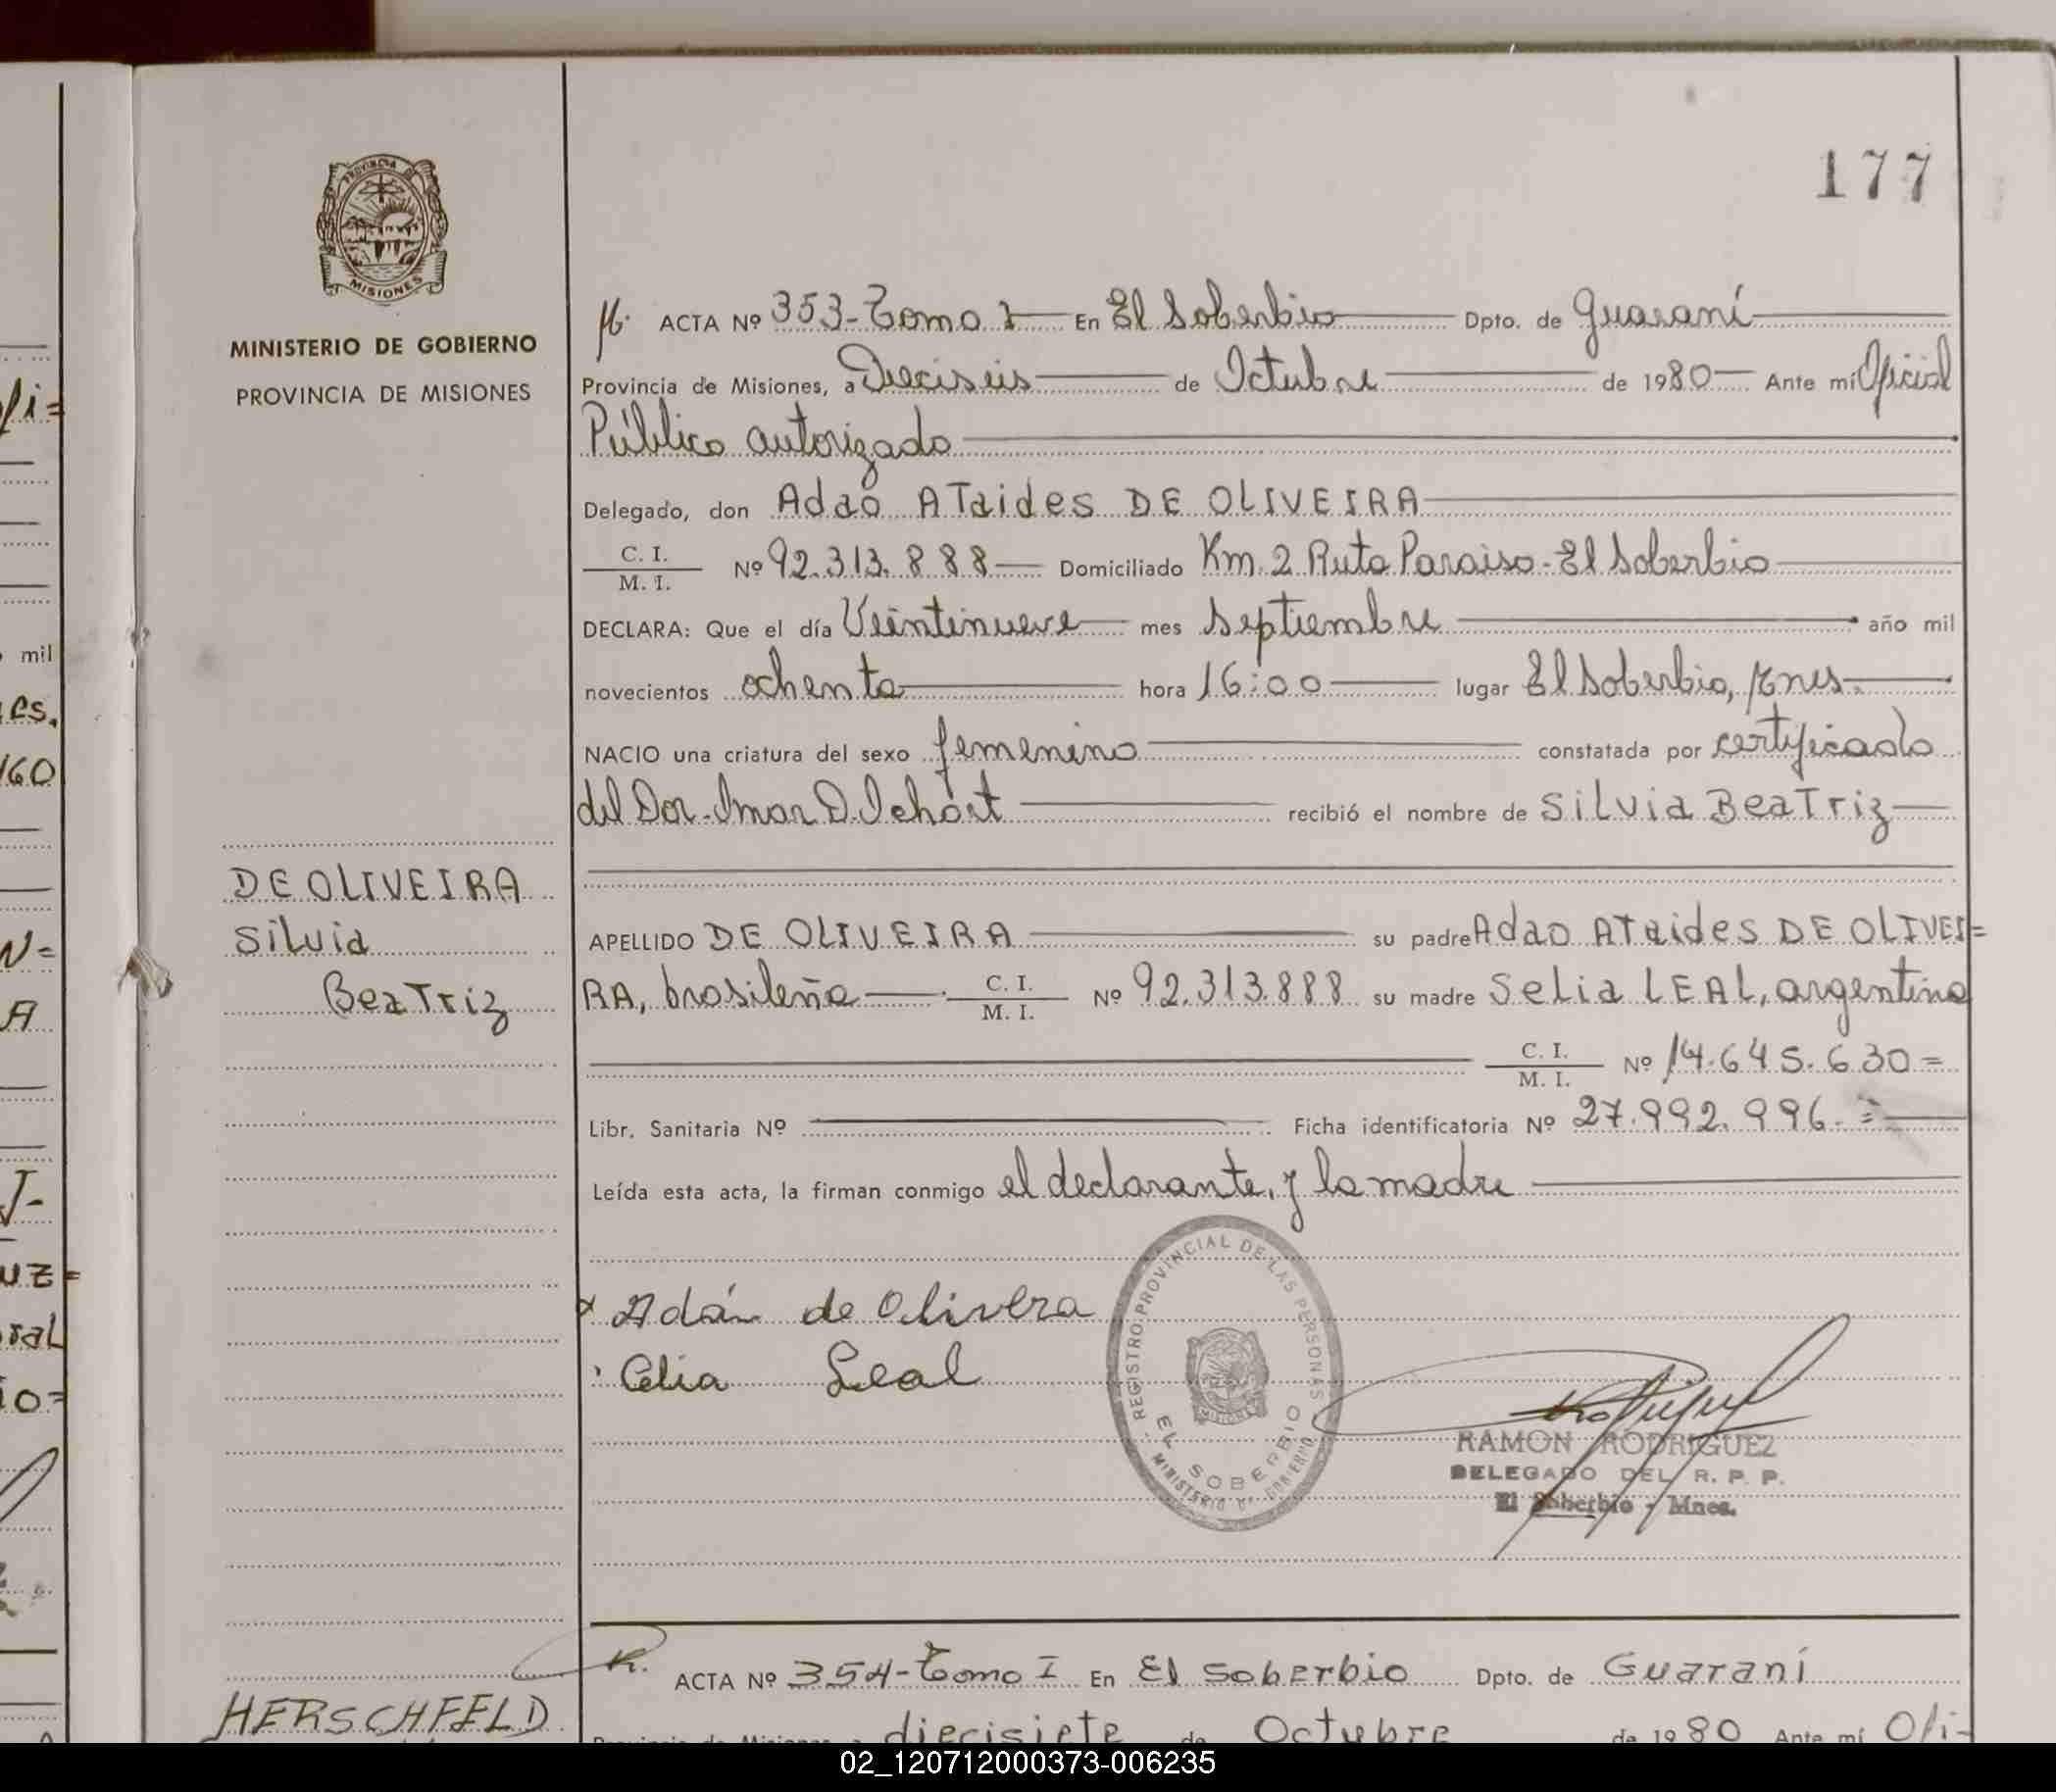 177
PROVINCIA DE
MISIONES
MINISTERIO DE GOBIERNO
PROVINCIA DE MISIONES
ACTA Nº 353-Tomo I En El Soberbio Dpto. de Guaraní
Provincia de Misiones, a Dieciseis de Octubre de 1980 Ante mí Oficial
Público autorizado
Delegado, don Adao ATaides DE OLIVEIRA
C. I.
M. I. Nº 92.313.888 Domiciliado Km. 2 Ruta Paraiso-El Soberbio
DECLARA: Que el día Veintinueve mes Septiembre año mil
novecientos ochenta hora 16:00 lugar El Soberbio, Mnes.
NACIO una criatura del sexo femenino constatada por certificado
del Dor. Omar D. recibió el nombre de Silvia BeaTriz
DE OLIVEIRA
Silvia
BeaTriz
APELLIDO DE OLIVEIRA su padre Adao ATaides DE OLIVEI=
RA, brasileña C. I.
M. I. Nº 92.313.888 su madre Selia LEAL, argentina
C. I.
M. I. Nº 14.645.630=
Libr. Sanitaria Nº Ficha identificatoria Nº 27.992.996.=
Leída esta acta, la firman conmigo el declarante, y la madre
Adán de Olivera
Celia Leal
REGISTRO PROVINCIAL DE LAS PERSONAS
EL SOBERBIO
MINISTERIO DE GOBIERNO
RAMON RODRIGUEZ
DELEGADO DEL R. P. P.
El Soberbio - Mnes.
ACTA Nº 354-Tomo I En El Soberbio Dpto. de Guaraní
HERSCHFELD
diecisiete de Octubre de 1980 Ante mí Ofi-
02_120712000373-006235